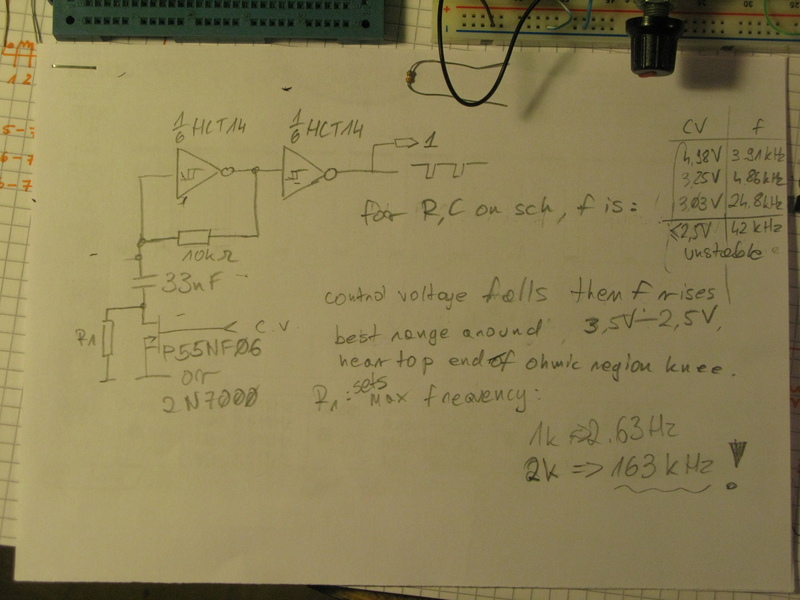 1/6 HCT14
1/6 HCT14
1
10kΩ
33nF
R1
C.V.
P55NF06
or
2N7000
for R,C on sch, f is:
CV f
4,98V 3.91kHz
3,25V 4.86kHz
3,03V 24.8kHz
≤2,5V 42kHz
unstable
control voltage falls then f rises
best range around 3,5V-2,5V,
near top end of ohmic region knee.
R1: sets max freqency:
1k => 2.63Hz
2k => 163kHz !